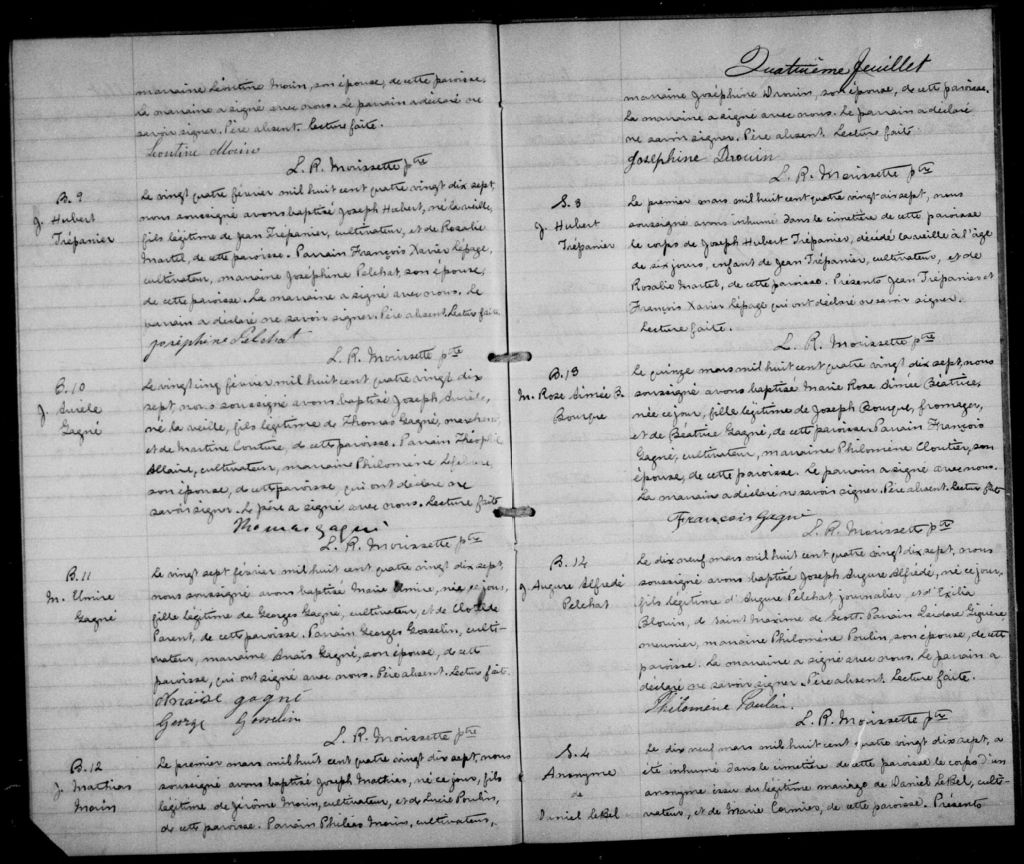 marraine Léontine Morin, son épouse, de cette paroisse.
La marraine a signé avec nous. Le parrain a déclaré ne
savoir signer. Père absent. Lecture faite.
Leontine Morin
L. R. Morissette ptre
B. 9
J. Hubert
Trépanier
Le vingt quatre février mil huit cent quatre vingt dix sept,
nous soussigné avons baptisé Joseph Hubert, né la veille,
fils légitime de Jean Trépanier, cultivateur, et de Rosalie
Martel, de cette paroisse. Parrain François Xavier Lépage,
cultivateur, marraine Joséphine Pelchat, son épouse,
de cette paroisse. La marraine a signé avec nous. Le
parrain a déclaré ne savoir signer. Père absent. Lecture faite.
Joséphine Pelchat
L. R. Morissette ptre
B. 10
J. Aurèle
Gagné
Le vingt cinq février mil huit cent quatre vingt dix
sept, nous soussigné avons baptisé Joseph Aurèle,
né la veille, fils légitime de Thomas Gagné, marchand,
et de Martine Couture, de cette paroisse. Parrain Théophile
Allaire, cultivateur, marraine Philomène Lefebvre,
son épouse, de cette paroisse, qui ont déclaré ne
savoir signer. Le père a signé avec nous. Lecture faite
Thomas Gagné
L. R. Morissette ptre
B. 11
M. Elmire
Gagné
Le vingt sept février mil huit cent quatre vingt dix sept,
nous soussigné avons baptisé Marie Elmire, née ce jour,
fille légitime de Georges Gagné, cultivateur, et de Clotilde
Parent, de cette paroisse. Parrain Georges Gosselin, culti-
vateur, marraine Anaïs Gagné, son épouse, de cette
paroisse, qui ont signé avec nous. Père absent. Lecture faite
gagné
George Gosselin
L. R. Morissette ptre
B. 12
J. Mathias
Morin
Le premier mars mil huit cent quatre vingt dix sept, nous
soussigné avons baptisé Joseph Mathias, né ce jour, fils
légitime de Jérôme Morin, cultivateur, et de Lucie Poulin,
de cette paroisse. Parrain Philéas Morin, cultivateur,
Quatrième feuillet
marraine Joséphine Drouin, son épouse, de cette paroisse.
La marraine a signé avec nous. Le parrain a déclaré
ne savoir signer. Père absent. Lecture faite
Joséphine Drouin
L. R. Morissette ptre
S. 3
J. Hubert
Trépanier
Le premier mars mil huit cent quatre vingt dix sept, nous
soussigné avons inhumé dans le cimetière de cette paroisse
le corps de Joseph Hubert Trépanier, décédé la veille à l'âge
de six jours, enfant de Jean Trépanier, cultivateur, et de
Rosalie Martel, de cette paroisse. Présents Jean Trépanier et
François Xavier Lépage qui ont déclaré ne savoir signer.
Lecture faite.
L. R. Morissette ptre
B. 13
M. Rose Aimée B.
Bourque
Le quinze mars mil huit cent quatre vingt dix sept, nous
soussigné avons baptisé Marie Rose Aimée Béatrice,
née ce jour, fille légitime de Joseph Bourque, fromager,
et de Béatrice Gagné, de cette paroisse. Parrain François
Gagné, cultivateur, marraine Philomène Cloutier, son
épouse, de cette paroisse. Le parrain a signé avec nous.
La marraine a déclaré ne savoir signer. Père absent. Lecture faite
François Gagné
L. R. Morissette ptre
B. 14
J. Augure Alfrédé
Pelchat
Le dix neuf mars mil huit cent quatre vingt dix sept, nous
soussigné avons baptisé Joseph Augure Alfrédé, né ce jour,
fils légitime d'Augure Pelchat, journalier, et d'Exilia
Blouin, de Saint Maxime de Scott. Parrain Isidore Giguère,
meunier, marraine Philomène Poulin, son épouse, de cette
paroisse. La marraine a signé avec nous. Le parrain a
déclaré ne savoir signer. Père absent. Lecture faite.
Philomène Poulin.
L. R. Morissette ptre
S. 4
Anonyme
de
Daniel LeBel
Le dix neuf mars mil huit cent quatre vingt dix sept, a
été inhumé dans le cimetière de cette paroisse le corps d'un
anonyme issu du légitime mariage de Daniel LeBel, culti-
vateur, et de Marie Cormier, de cette paroisse. Présents